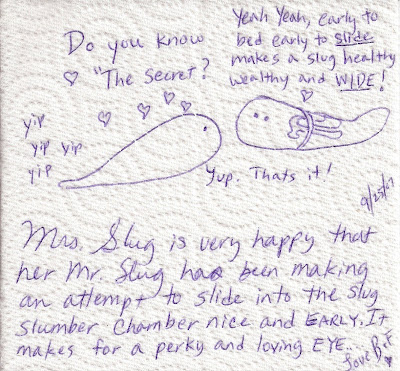 Do you know
♡ "The Secret?
Yeah Yeah, early to
bed early to slide
makes a slug healthy
wealthy and WIDE!
yip
yip yip
yip
Yup. Thats it!
9/25/07
Mrs. Slug is very happy that
her Mr. Slug has been making
an attempt to slide into the slug
slumber chamber nice and EARLY. It
makes for a perky and loving EYE...
Love B.F